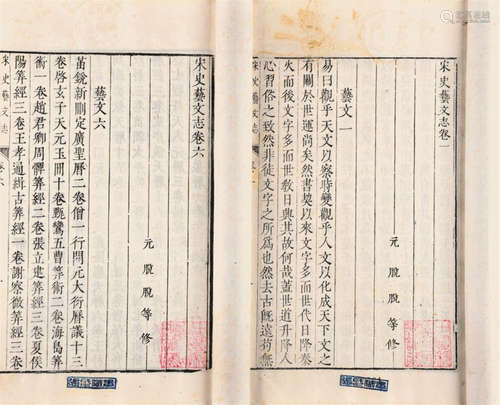 宋史藝文志卷一
元脫脫等修
藝文一
易曰觀乎天文以察時變觀乎人文以化成天下文之
有關於世運尚矣然書契以來文字多而世代日降秦
火而後文字多而世教日興其故何哉蓋世道升降人
心習俗之致然非徒文字之所爲也然去古既遠苟無
宋史藝文志
宋史藝文志卷六
元脫脫等修
藝文六
苗銳新刪定廣聖曆二卷僧一行開元大衍曆議十三
卷啓玄子天元玉冊十卷甄鸞五曹算術二卷海島算
術一卷趙君卿周髀算經二卷張立建算經三卷夏侯
陽算經三卷王孝通緝古算經一卷謝察微算經三卷
宋史藝文志
卷六